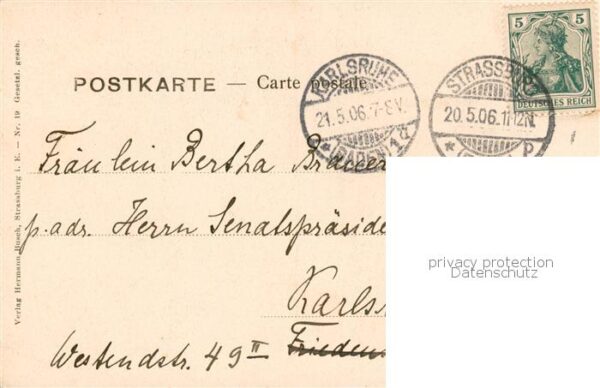 5 5
DEUTSCHES REICH
POSTKARTE — Carte postale
KARLSRUHE
21.5.06.7-8V.
(BADEN) 1d
STRASSBURG
20.5.06.11-12N.
Fräulein Bertha
p. adr. Herrn Senatspräside
Karls
Westendstr. 49 II
privacy protection
Datenschutz
Verlag Hermann Busch, Strassburg i. E. — Nr. 19 Gesetzl. gesch.